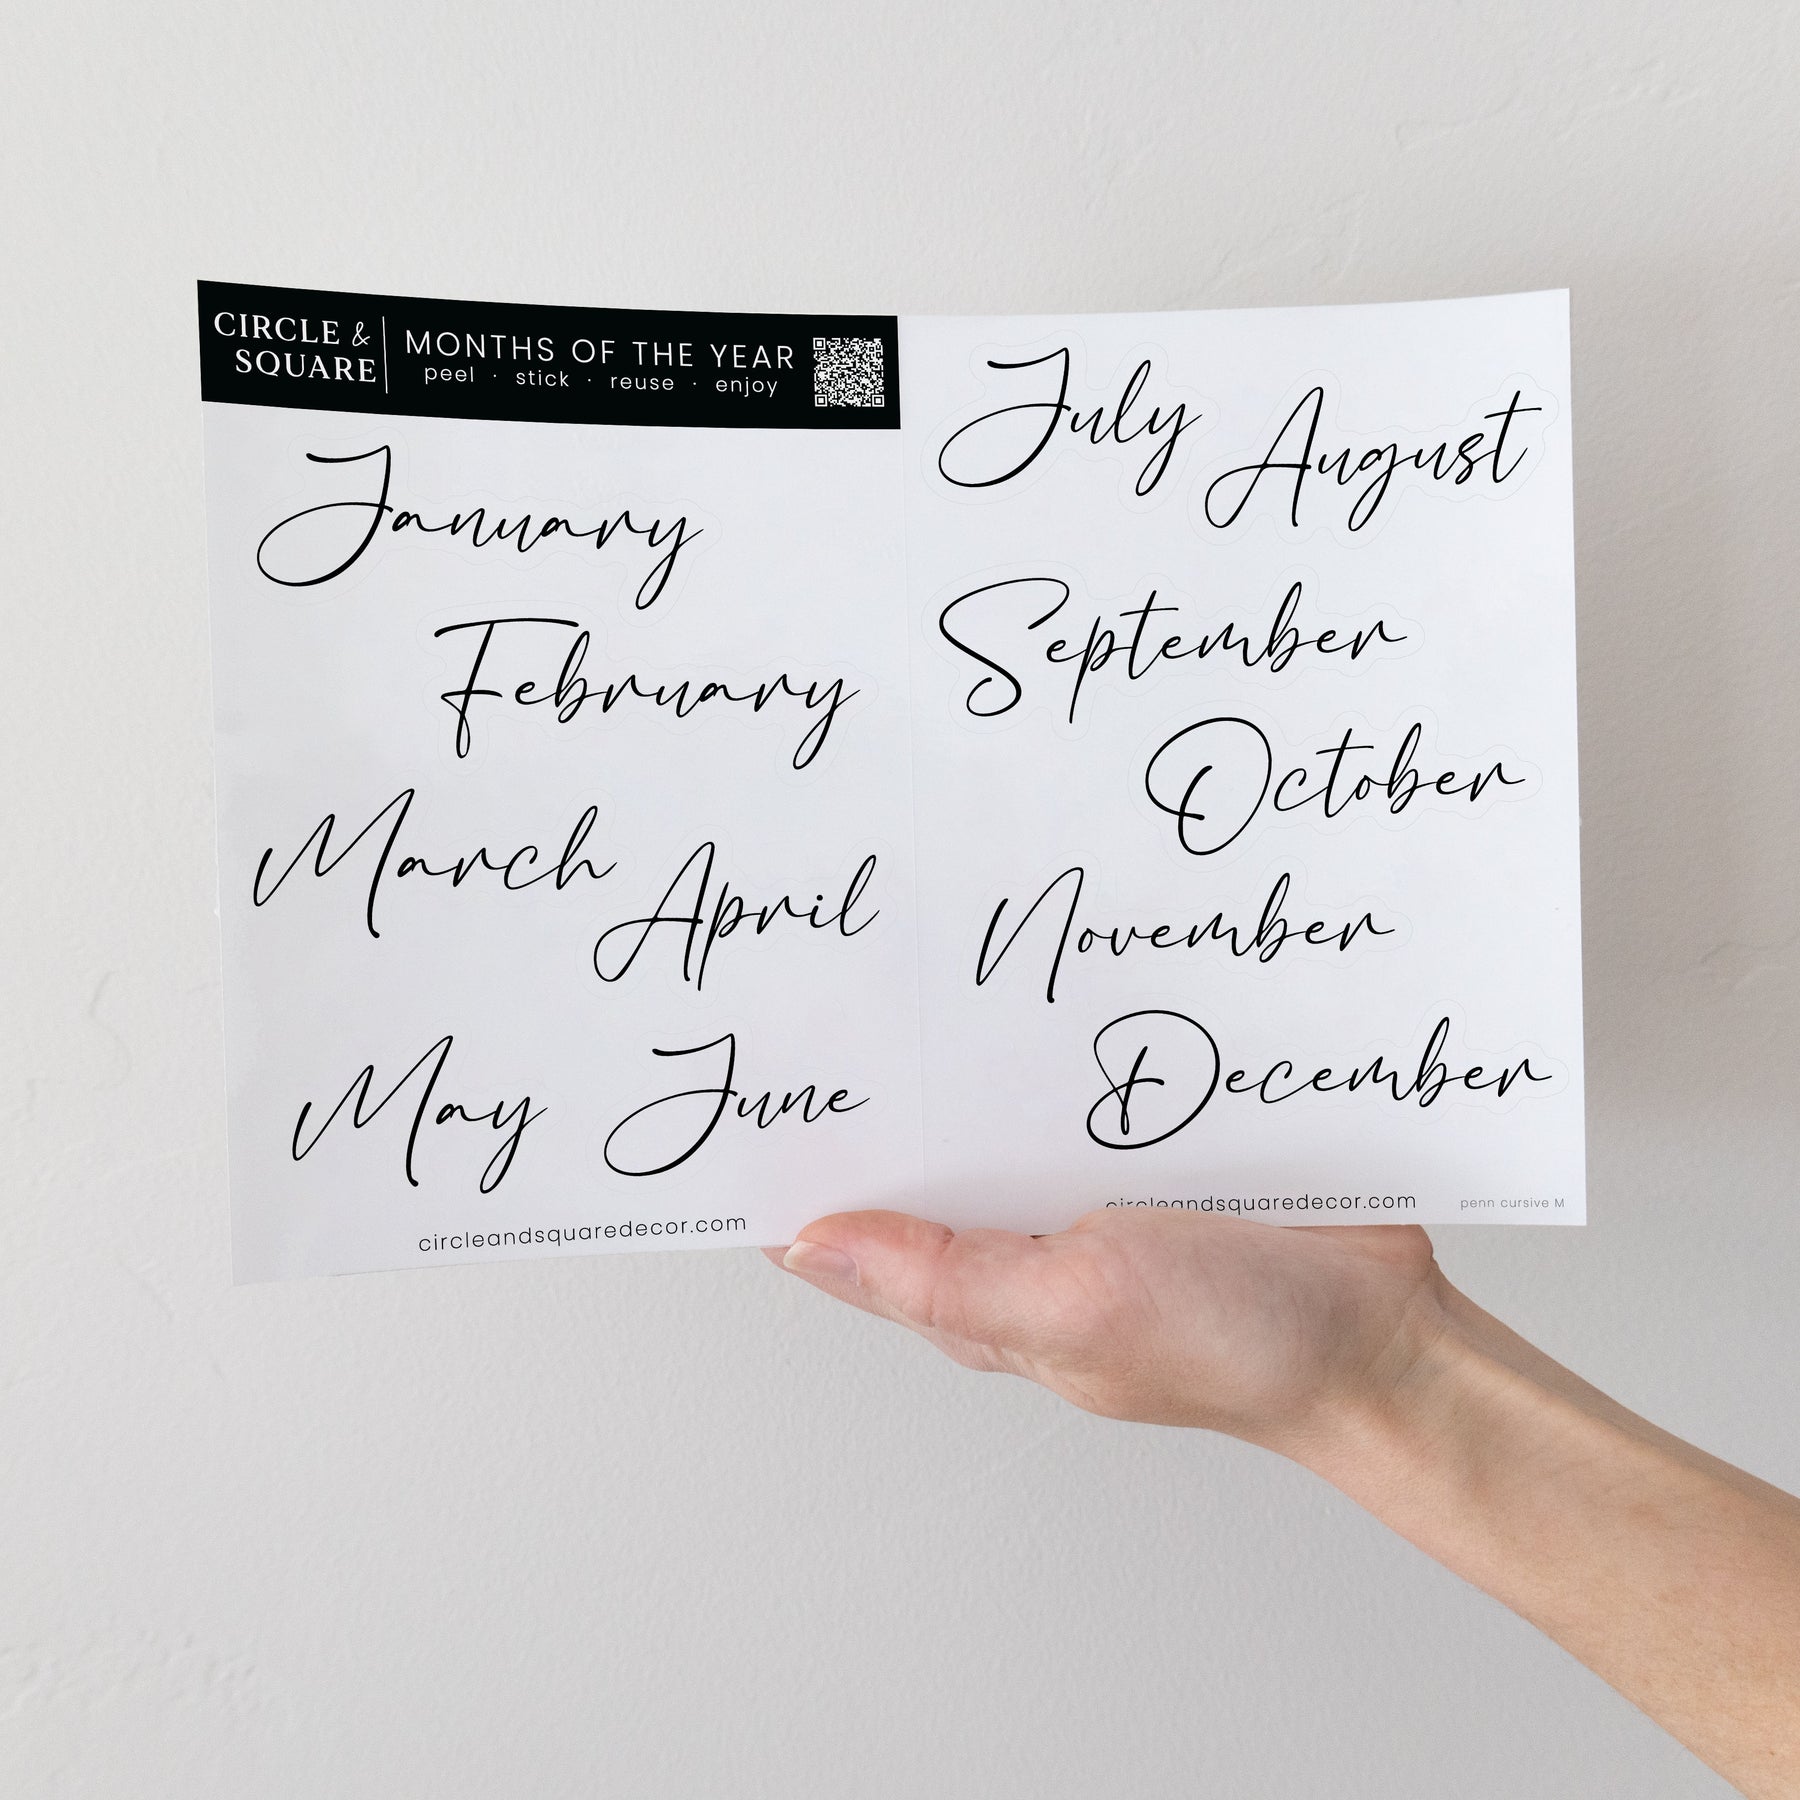 CIRCLE &
SQUARE
MONTHS OF THE YEAR
peel · stick · reuse · enjoy
January
February
March
April
May
June
circleandsquaredecor.com
July
August
September
October
November
December
circleandsquaredecor.com
penn cursive M